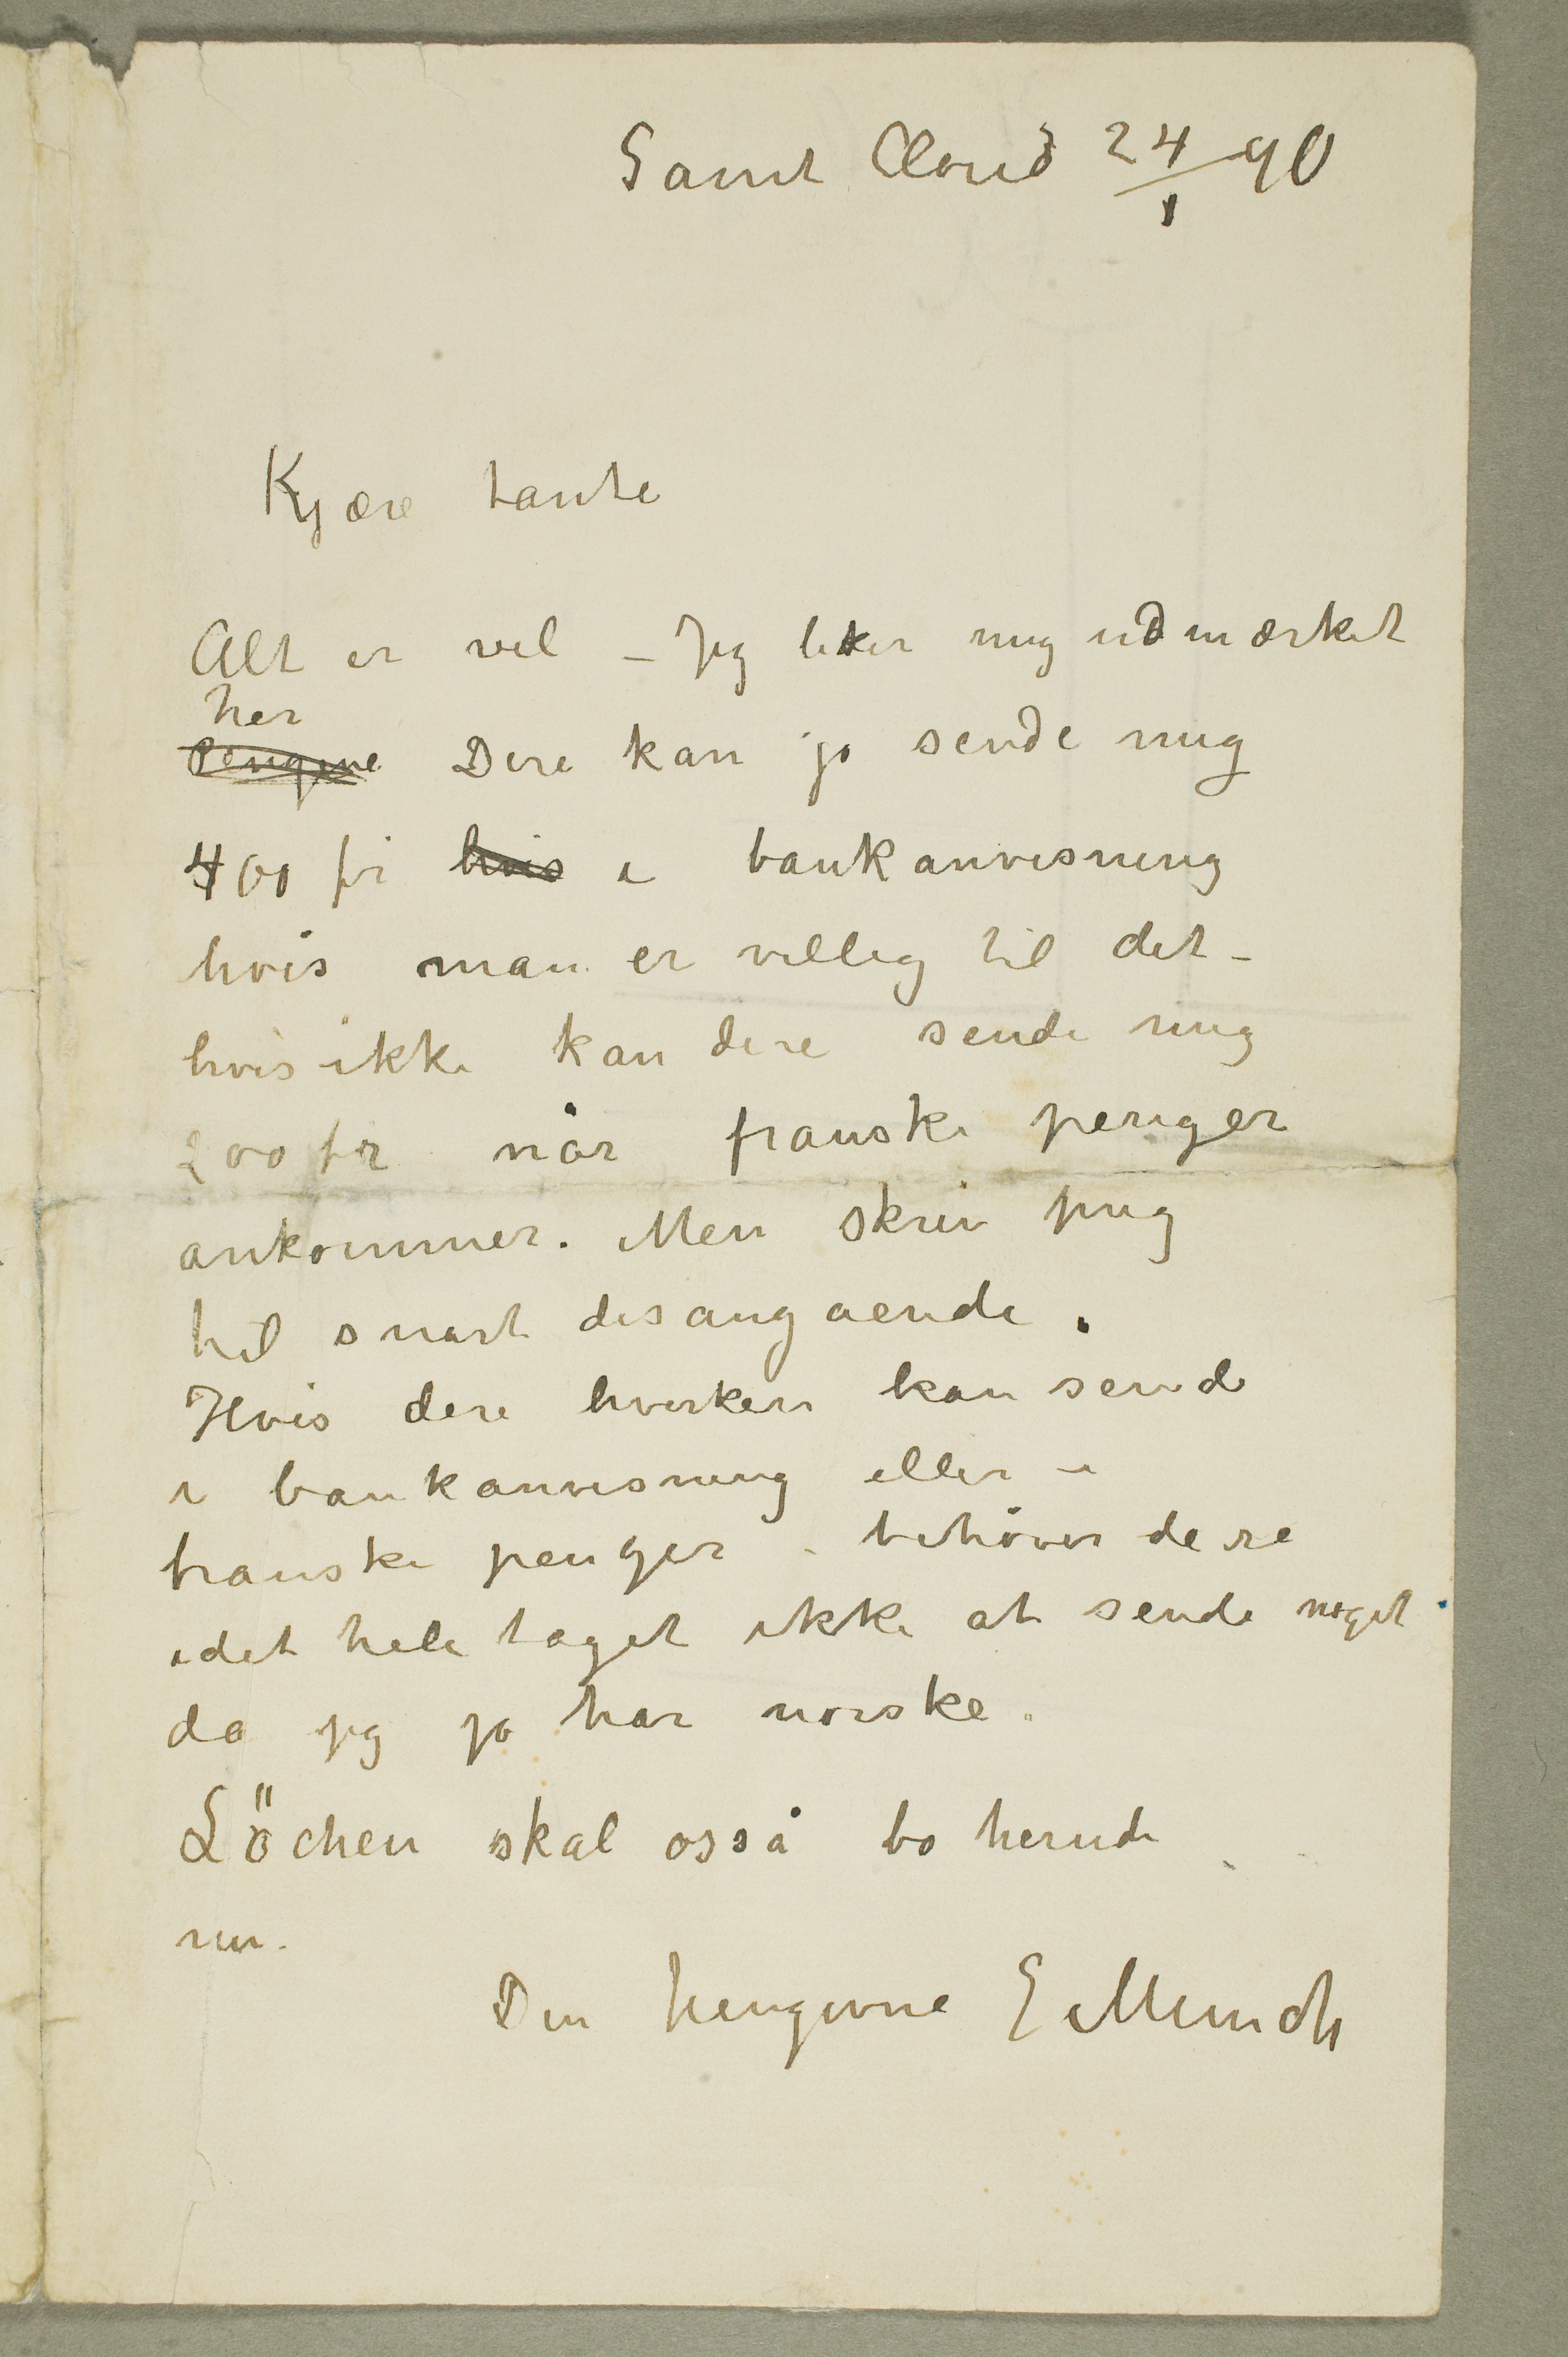 Saint Cloud 24/1 90
Kjære tante
Alt er vel – Jeg liker mig udmærket
her
Pengene Dere kan jo sende mig
400 fr hvis i bankanvisning
hvis man er villig til det –
hvis ikke kan dere sende mig
200 fr når franske penger
ankommer. Men skriv mig
til snart desangaaende.
Hvis dere hverken kan sende
i bankanvisning eller i
franske penger – behöver dere
idet hele taget ikke at sende noget
da jeg jo har norske.
Löchen skal osså bo herude
nu.
Din hengivne E Munch